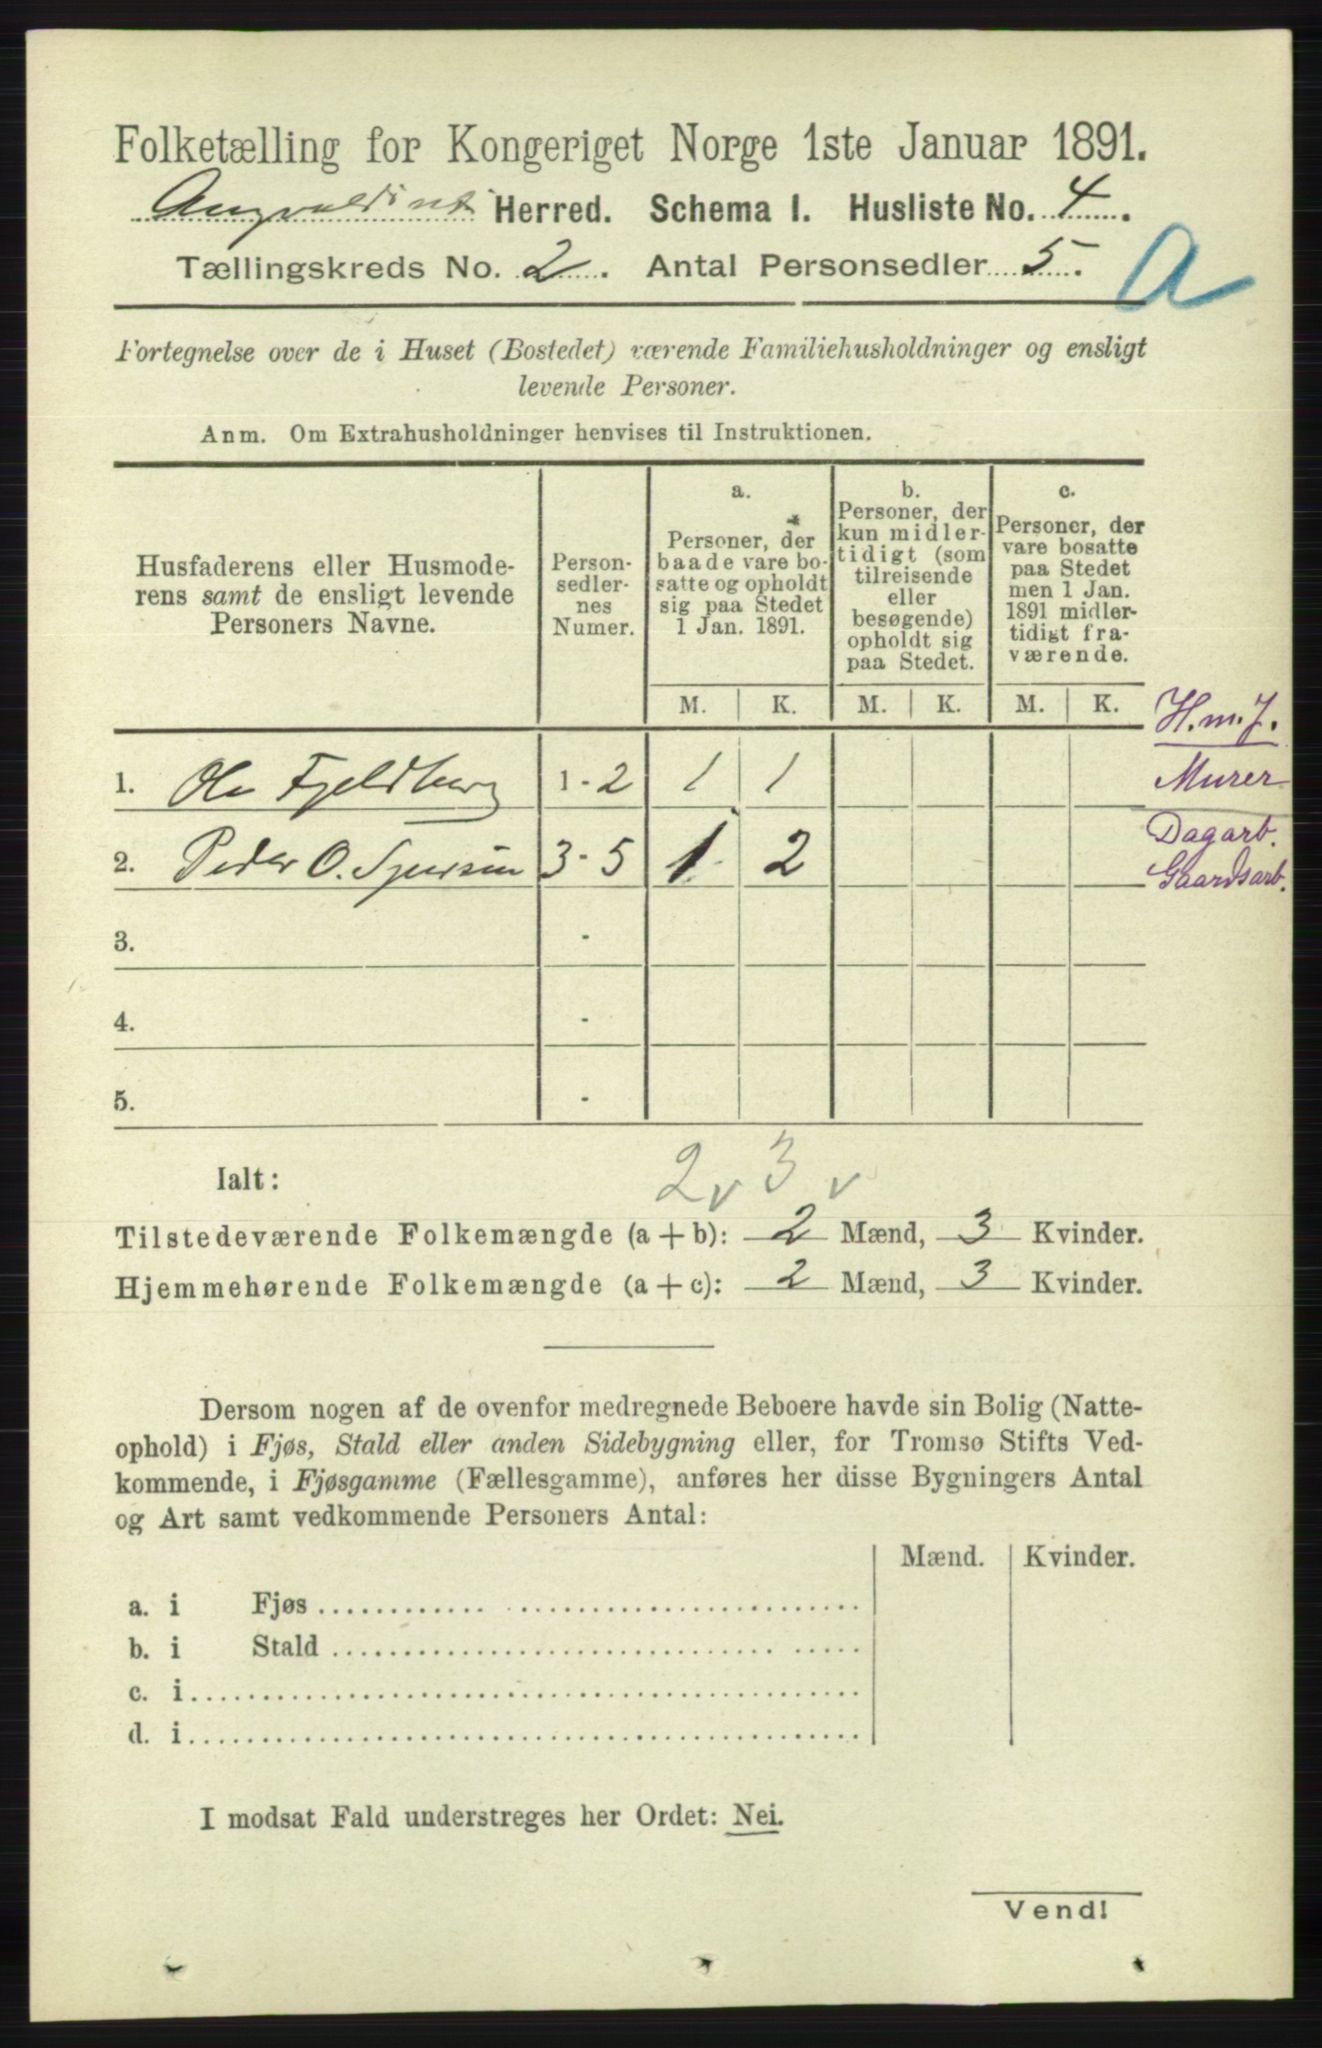 Folketælling for Kongeriget Norge 1ste Januar 1891.
Herred. Schema I. Husliste No. 4.
Tællingskreds No. 2. Antal Personsedler 5.
A
Fortegnelse over de i Huset (Bostedet) værende Familiehusholdninger og ensligt
levende Personer.
Anm. Om Extrahusholdninger henvises til Instruktionen.
Husfaderens eller Husmode-
rens samt de ensligt levende
Personers Navne.
Person-
sedler-
nes
Numer.
a.
Personer, der
baade vare bo-
satte og opholdt
sig paa Stedet
1 Jan. 1891.
b.
Personer, der
kun midler-
tidigt (som
tilreisende
eller
besøgende)
opholdt sig
paa Stedet.
c.
Personer, der
vare bosatte
paa Stedet
men 1 Jan.
1891 midler-
tidigt fra-
værende.
M. K. M. K. M. K.
H.m.J.
1. Ole Fjeldberg 1-2 1 1 Murer
2. Peder O. 3-5 1 2 Dagarb.
Gaardsarb.
3. -
4. -
5. -
Ialt: 2 v 3 v
Tilstedeværende Folkemængde (a + b): 2 Mænd, 3 Kvinder.
Hjemmehørende Folkemængde (a + c): 2 Mænd, 3 Kvinder.
Dersom nogen af de ovenfor medregnede Beboere havde sin Bolig (Natte-
ophold) i Fjøs, Stald eller anden Sidebygning eller, for Tromsø Stifts Ved-
kommende, i Fjøsgamme (Fællesgamme), anføres her disse Bygningers Antal
og Art samt vedkommende Personers Antal:
Mænd. Kvinder.
a. i Fjøs
b. i Stald
c. i
d. i
I modsat Fald understreges her Ordet: Nei.
Vend!